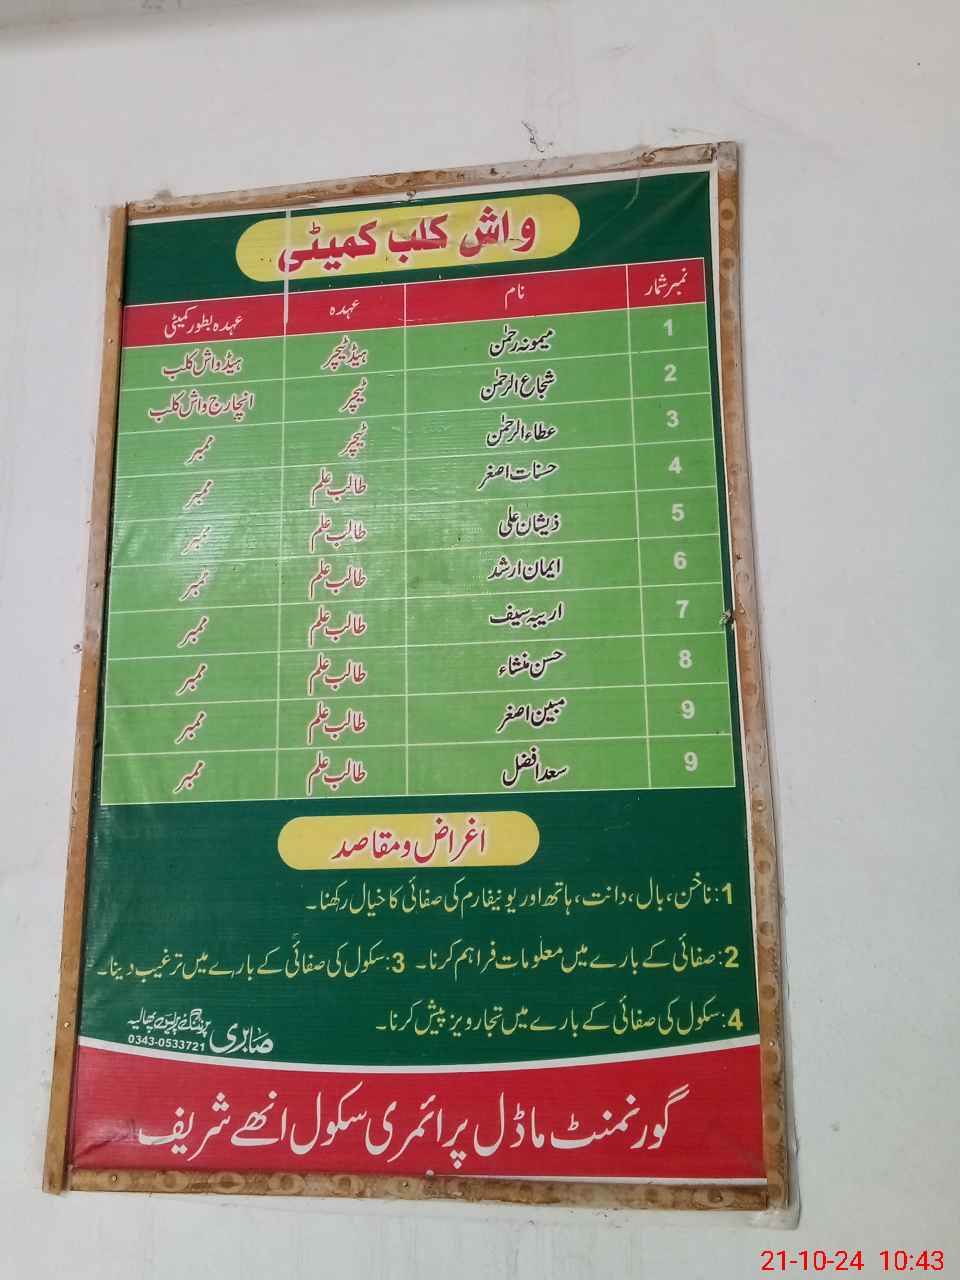 واش کلب کمیٹی
نمبر شمار نام عہدہ عہدہ بطور کمیٹی
1 میمونہ رحمٰن ہیڈ ٹیچر ہیڈ واش کلب
2 شجاع الرحمٰن ٹیچر انچارج واش کلب
3 عطاء الرحمٰن ٹیچر ممبر
4 حسنات اصغر طالب علم ممبر
5 ذیشان علی طالب علم ممبر
6 ایمان ارشد طالب علم ممبر
7 اریبہ سیف طالب علم ممبر
8 حسن منشاء طالب علم ممبر
9 مبین اصغر طالب علم ممبر
9 سعد افضل طالب علم ممبر
اغراض و مقاصد
1: ناخن، بال، دانت، ہاتھ اور یونیفارم کی صفائی کا خیال رکھنا۔
2: صفائی کے بارے میں معلومات فراہم کرنا۔ 3: سکول کی صفائی کے بارے میں ترغیب دینا۔
4: سکول کی صفائی کے بارے میں تجاویز پیش کرنا۔
صابری پرنٹنگ پریس پھالیہ
0343-0533721
گورنمنٹ ماڈل پرائمری سکول انھے شریف
21-10-24 10:43